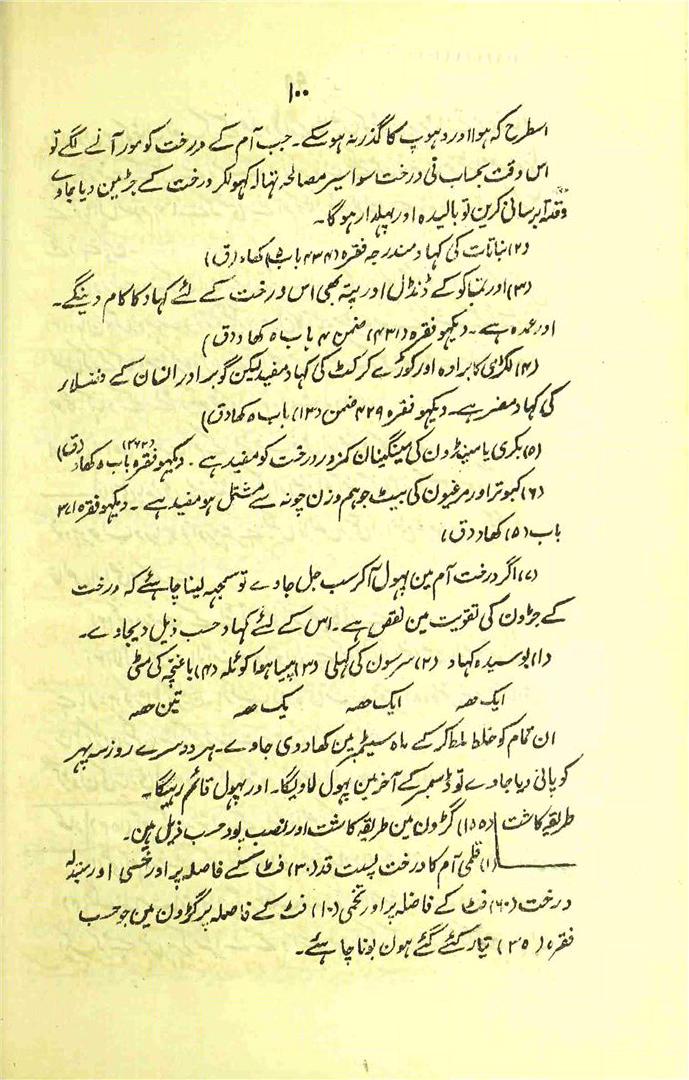 ۱۰۰
اسطرح کہ ہوا اور دہوپ کا گذر نہ ہو سکے۔ جب آم کے درخت کو مور آنے لگے تو
اس وقت بحساب فی درخت سوا سیر مصالحہ تہالہ کہولکر درخت کے جڑمین دیا جاوے
آبرسانی کرین تو بالیدہ اور پہلدار ہوگا۔
(۲) نباتات کی کہاد مندرجہ فقرہ (۴۳۴) باب (۵) کہاد (ق)
(۳) اور تمباکو کے ڈنڈل اور پتہ بھی اس درخت کے لئے کہاد کا کام دینگے۔
اور عمدہ ہے۔ دیکہو فقرہ (۴۳۱) ضمن ۴ باب ۵ کہاد (ق)
(۴) لکڑی کا برادہ اور کوڑے کرکٹ کی کہاد مفید لیکن گوبر اور انسان کے فضلہ
کی کہاد مضر ہے۔ دیکہو فقرہ ۴۲۹ ضمن (۱۳) باب ۵ کہاد (ق)
(۵) بکری یا مینڈون کی مینگنیان کمزور درخت کو مفید ہے۔ دیکہو فقرہ (۳۷۲) باب ۵ کہاد (ق)
(۶) کبوتر اور مرغیون کی بیٹ جو ہم وزن چونہ سے مشتمل ہو مفید ہے۔ دیکہو فقرہ ۳۷۱
باب (۵) کہاد (ق)
(۷) اگر درخت آم مین پہول آکر سب جل جاوے تو سمجہہ لینا چاہئے کہ درخت
کے جڑون کی تقویت مین نقص ہے۔ اس کے لئے کہاد حسب ذیل دیجاوے۔
(۱) بوسیدہ کہاد (۲) سرسون کی کہلی (۳) پیسا ہوا کوئلہ (۴) باغیچہ کی مٹی
ایک حصہ ایک حصہ یک حصہ تین حصہ
ان تمام کو خلط ملط کر کے ماہ سپٹمبر مین کہاد دی جاوے۔ ہر دوسرے روز سہ پہر
کو پانی دیا جاوے تو ڈسمبر کے آخر مین پہول لاویگا۔ اور پہول قائم رہیگا۔
طریقہ کاشت (۱۵۵) گڑون مین طریقہ کاشت اور نصب پود حسب ذیل ہین۔
(۱) قلمی آم کا درخت پست قد (۳۰) فٹ کے فاصلہ پر اور
درخت (۶۰) فٹ کے فاصلہ پر اور تخمی (۱۰) فٹ کے فاصلہ پر گڑون مین جو حسب
فقرہ (۳۵) تیار کئے گئے ہون بونا چاہئے۔